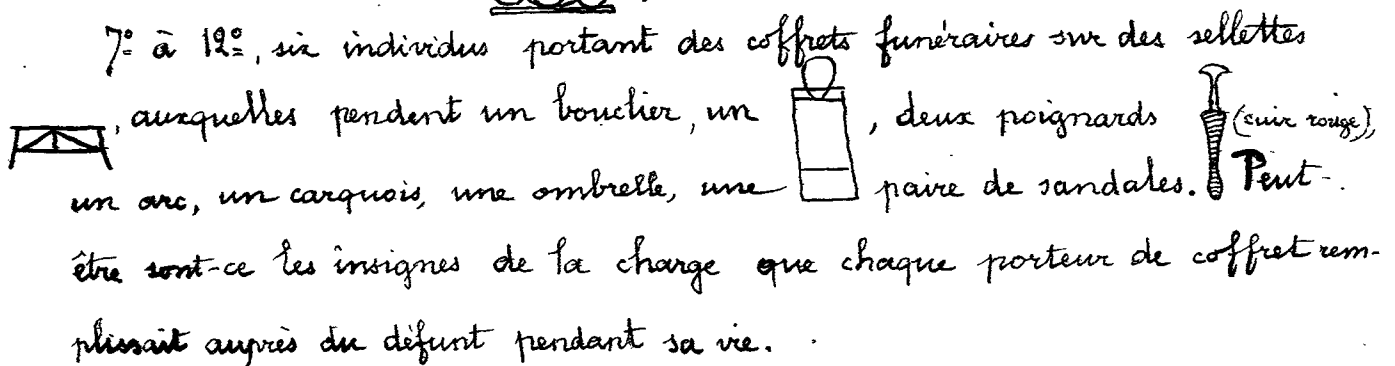 7º à 12º, six individus portant des coffrets funéraires sur des sellettes
, auxquelles pendent un bouclier, un , deux poignards (cuir rouge),
un arc, un carquois, une ombrelle, une paire de sandales. Peut-
être sont-ce les insignes de la charge que chaque porteur de coffret rem-
plissait auprès du défunt pendant sa vie.